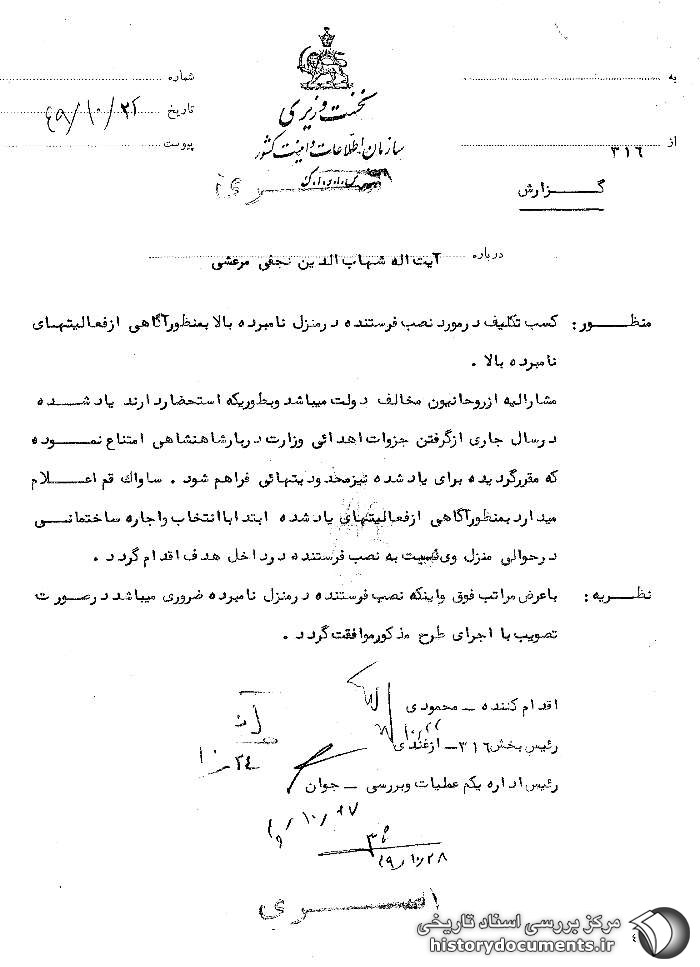 نخست وزیری
سازمان اطلاعات و امنیت کشور
به
از ۳۱۶
شماره
تاریخ ۴۹/۱۰/۲۲
پیوست
گزارش
درباره آیت اله شهاب الدین نجفی مرعشی
منظور: کسب تکلیف درمورد نصب فرستنده درمنزل نامبرده بالا بمنظورآگاهی ازفعالیتهای
نامبرده بالا .
مشارالیه ازروحانیون مخالف دولت میباشد وبطوریکه استحضاردارند یاد شده
درسال جاری ازگرفتن جزوات اهدائی وزارت دربارشاهنشاهی امتناع نموده
که مقررگردیده برای یاد شده نیزمحدودیتهائی فراهم شود . ساواك قم اعلام
میدارد بمنظورآگاهی ازفعالیتهای یاد شده ابتدا باانتخاب واجاره ساختمانی
درحوالی منزل وی نسبت به نصب فرستنده درداخل هدف اقدام گردد .
نظریه: باعرض مراتب فوق واینکه نصب فرستنده درمنزل نامبرده ضروری میباشد درصورت
تصویب با اجرای طرح مذکورموافقت گردد .
اقدام کننده – محمودی
۱۰/۲۲
رئیس بخش ۳۱۶ – ازغندی
۱۰/۲۴
رئیس اداره یکم عملیات وبررسی – جوان
۴۹/۱۰/۲۸
سری
مرکز بررسی اسناد تاریخی
historydocuments.ir